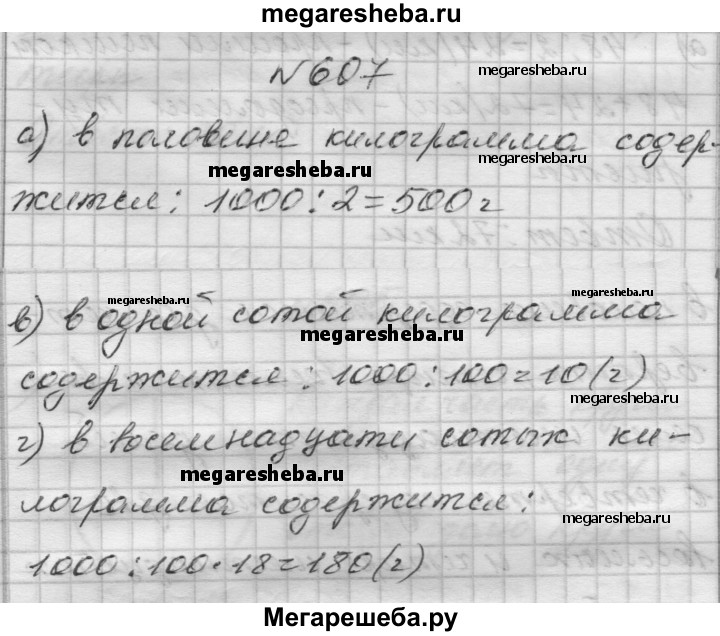 megaresheba.ru
№607
megaresheba.ru
а) в половине килограмма содер-
megaresheba.ru
megaresheba.ru
жится: 1000:2=500г
megaresheba.ru
megaresheba.ru
в) в одной сотой килограмма
megaresheba.ru
содержится: 1000:100=10(г)
megaresheba.ru
г) в восемнадцати сотых ки-
megaresheba.ru
лограмма содержится:
megaresheba.ru
1000:100·18=180(г)
Мегарешеба.ру